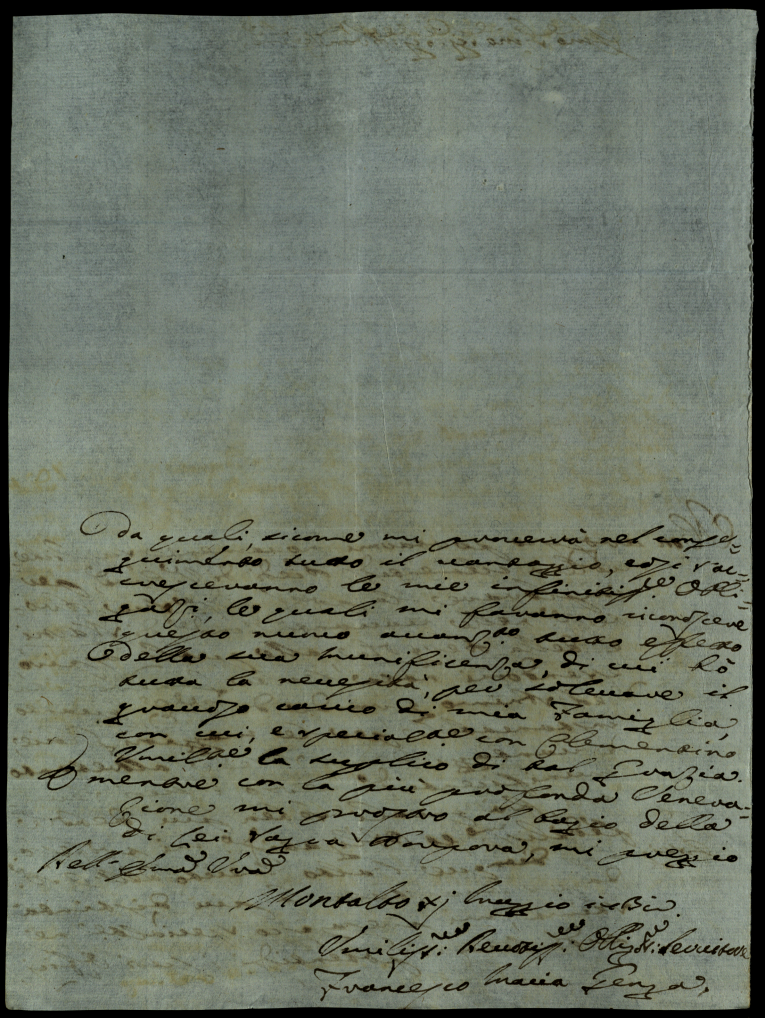 da quali, sicome mi provverà nel conse=
guimento tutto il vantaggio, così rac=
cresceranno le mie infinitiss.e Obli=
gaz.i, le quali mi faranno riconoscere
questo nuovo avanz.to tutto effetto
della sua munificenza, di cui hò
tutta la necessità, per sollevare il
gravoso carico di mia Famiglia,
con cui, e specialm.te con Clementino
Umilm.te la supplico di tal Grazia.
mentre con la più profonda Venera=
zione mi prostro al bacio della
di Lei Sagra Porpora, mi preggio
Dell'
Montalto xj Maggio
Umiliss.mo: Devotiss.mo: Obligat.mo: Servitore
Francesco Maria Genga.